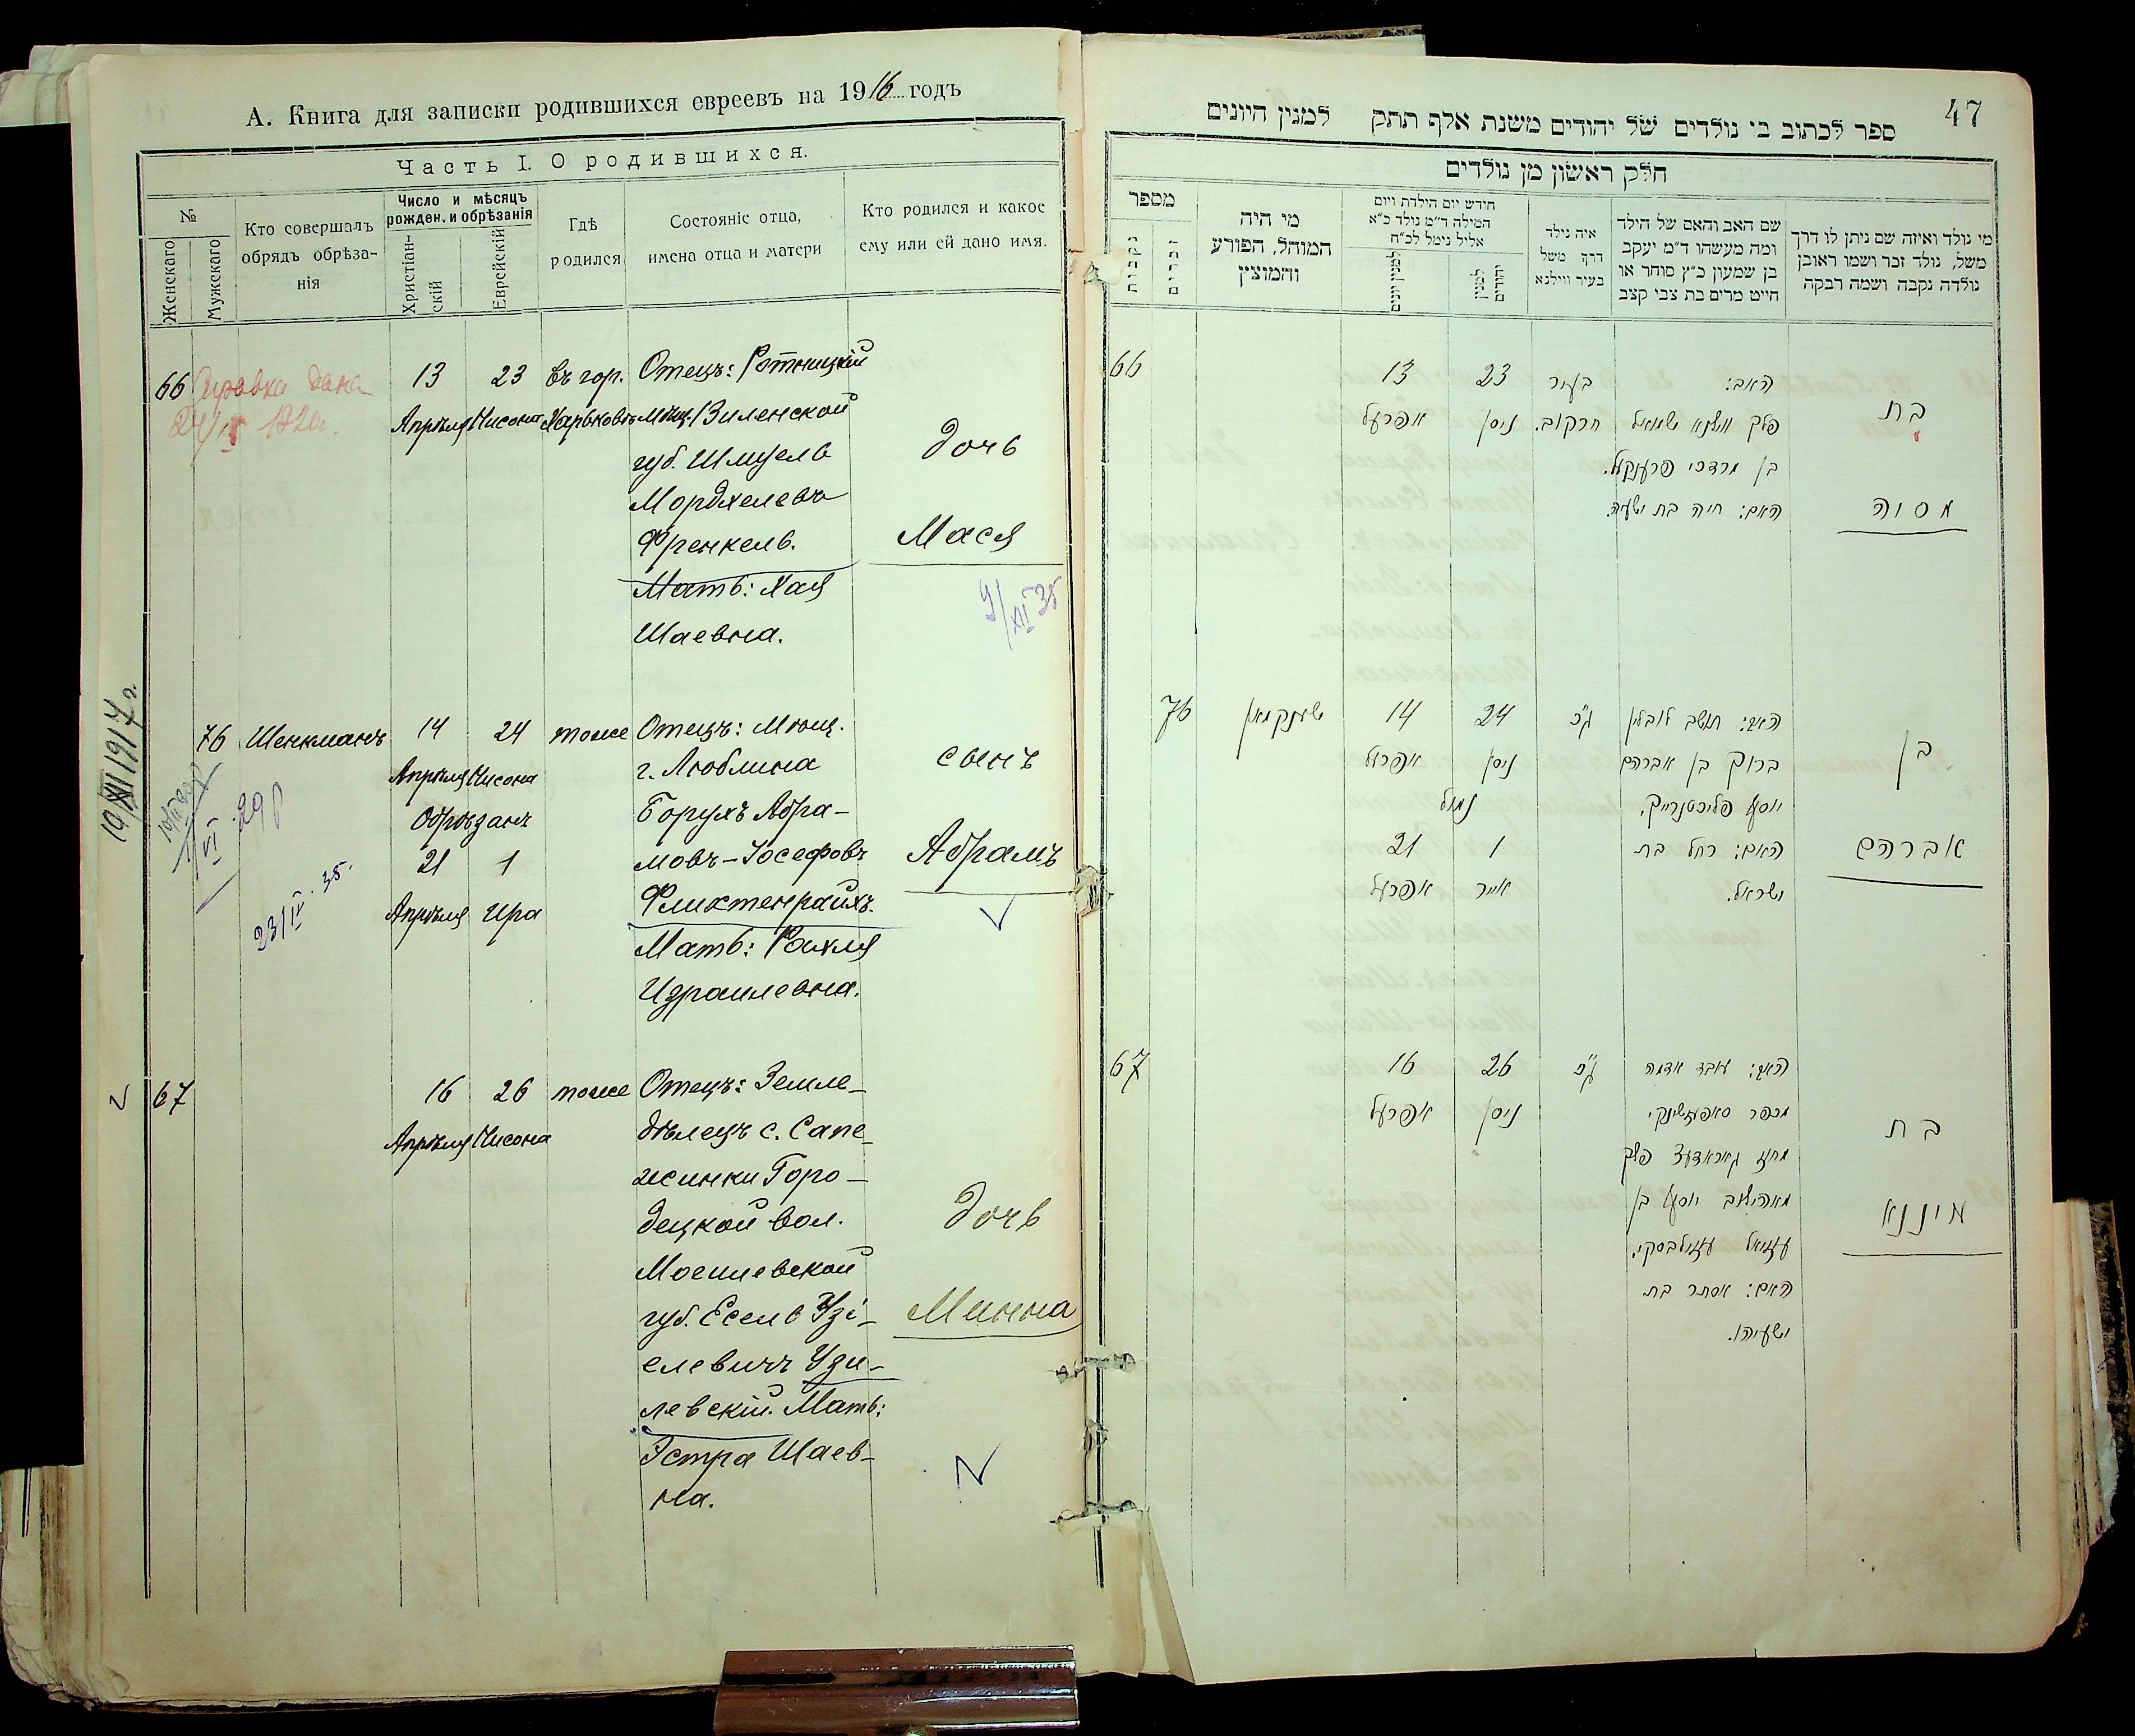 А. Книга для записки родившихся евреевъ на 1916 годъ
Часть I. О родившихся.
№
Женскаго
Мужскаго
Кто совершалъ
обрядъ обрѣза-
нія
Число и мѣсяцъ
рожден. и обрѣзанія
Христіан-
скій
Еврейскій
Гдѣ
родился
Состояніе отца,
имена отца и матери
Кто родился и какое
ему или ей дано имя.
66
Справка дана
13
Апрѣля
23
Нисона
Въ гор.
Харьковѣ
Отецъ:
Мѣщ. Виленской
губ. Шмуель
Мордхелевъ
Френкель.
Мать: Хая
Шаевна.
дочь
Мася
9/XII 35
10/XII 1917 г.
76
Шенкманъ
14
Апрѣля
24
Нисона
Обрѣзанъ
21
Апрѣля
1
Ира
тоже
Отецъ: Мѣщ.
г. Люблина
Борухъ Абра-
мовъ-Іосефовъ
Фликтенрайхъ.
Мать: Рахля
Израилевна.
сынъ
Абрамъ
23/IV. 35.
67
16
Апрѣля
26
Нисона
тоже
Отецъ: Земле-
дѣлецъ с. Сапе-
жинки Горо-
децкой вол.
Могилевской
губ. Есель Узі-
елевичъ Узи-
левскій. Мать:
Эстра Шаев-
на.
дочь
Минна
47
ספר לכתוב בי נולדים של יהודים משנת אלף תתק למנין היונים
חלק ראשון מן נולדים
מי נולד ואיזה שם ניתן לו דרך
משל, נולד זכר ושמו ראובן
נולדה נקבה ושמה רבקה
שם האב והאם של הילד
ומה מעשהו ד״מ יעקב
בן שמעון כ״ץ סוחר או
חייט מרים בת צבי קצב
איה נילד
דרך משל
בעיר ווילנא
חודש יום הילדת ויום
המילה ד״מ נולד כ״א
אליל נימל לכ״ח
למנין
יהודים
למנין יונים
מי היה
המוהל, הפורע
והמוצץ
מספר
זכרים
נקבות
66
בת
מסיה
האב:
פלך ווילנא שמואל
בן מרדכי פרענקעל.
האם: חיה בת ישעיה.
בעיר
חרקוב.
23
ניסן
13
אפרעל
76
בן
אברהם
האב: תושב לובלין
ברוך בן אברהם
יוסף פליכטנרייך,
האם: רחל בת
ישראל.
24
ניסן
14
אפרעל
נמול
1
אייר
21
אפרעל
שענקמאן
67
בת
מיננא
האב: עובד אדמה
מכפר סאפעזשינקי
מחוז גאראדעץ פלך
מאהילוב יוסף בן
עזיאל עזילבסקי,
האם: אסתר בת
ישעיהו.
26
ניסן
16
אפרעל